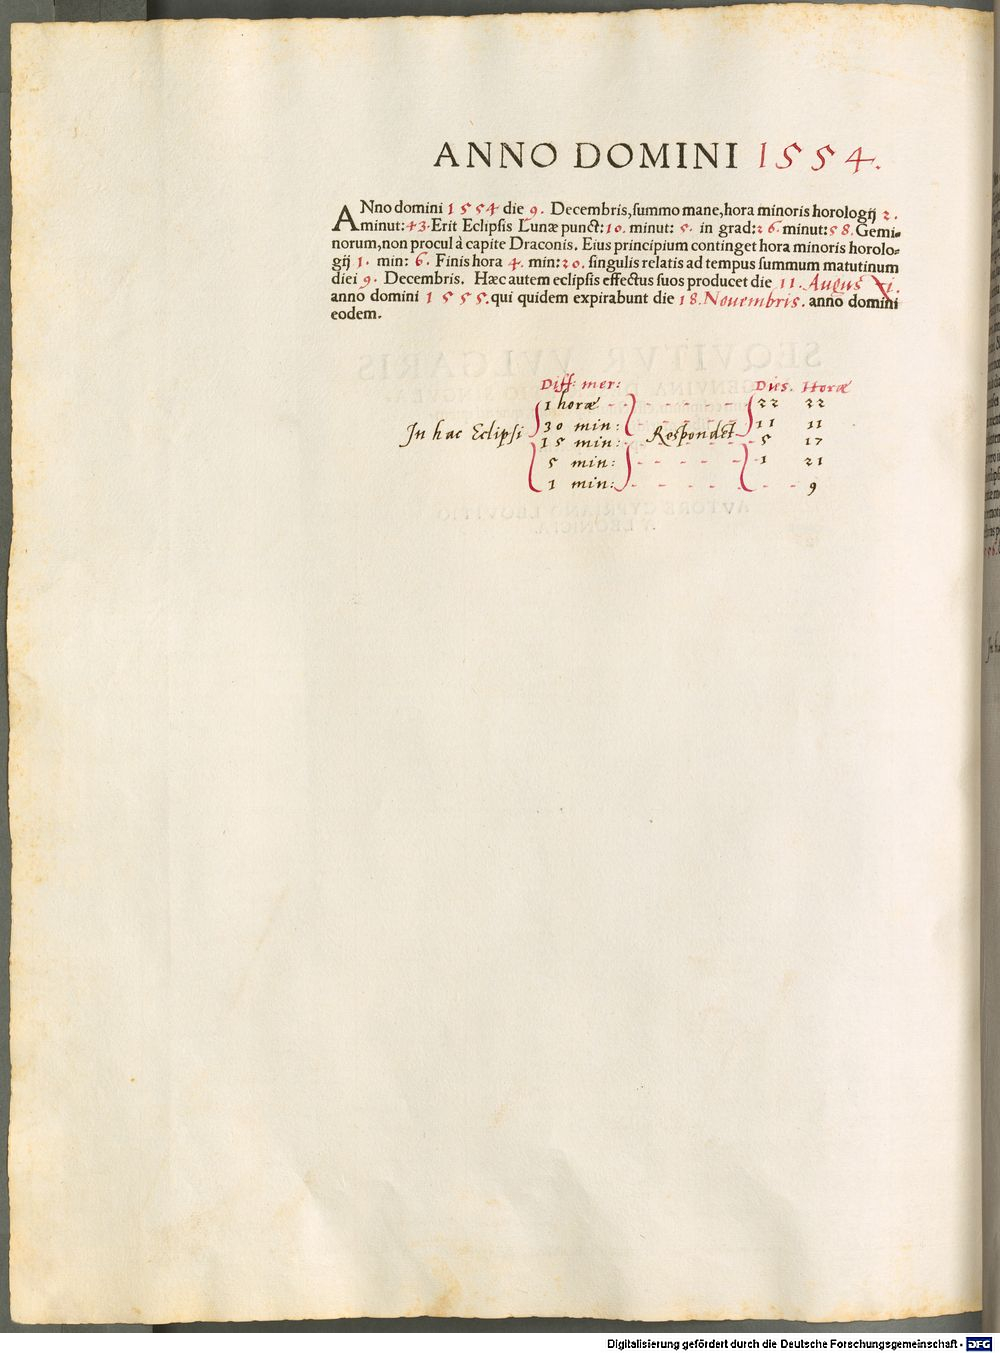 ANNO DOMINI 1554.
ANno domini 1554 die 9. Decembris, summo mane, hora minoris horologij 2.
minut: 43. Erit Eclipsis Lunæ punct: 10. minut: 5. in grad: 26. minut: 58. Gemi-
norum, non procul à capite Draconis. Eius principium continget hora minoris horolo-
gij 1. min: 6. Finis hora 4. min: 20. singulis relatis ad tempus summum matutinum
diei 9. Decembris. Hæc autem eclipsis effectus suos producet die 11. Augusti.
anno domini 1555. qui quidem expirabunt die 18. Nouembris. anno domini
eodem.
Diff: mer: Dies. Horæ
1 horæ 22 22
30 min: 11 11
In hac Eclipsi Respondet
15 min: 5 17
5 min: 1 21
1 min: 9
Digitalisierung gefördert durch die Deutsche Forschungsgemeinschaft - DFG